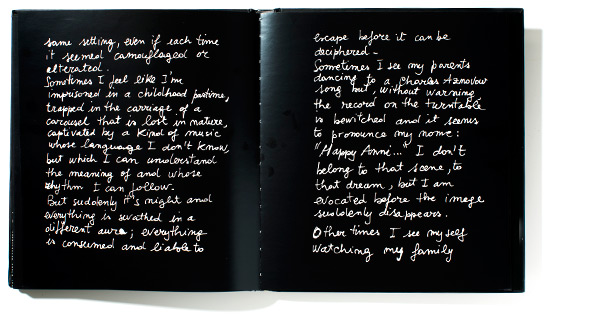 same setting, even if each time
it seemed camouflaged or
alterated.
Sometimes I feel like I'm
imprisoned in a childhood pastime,
trapped in the carriage of a
carousel that is lost in nature,
captivated by a kind of music
whose language I don't know,
but which I can understand
the meaning of and whose
rhythm I can follow.
But suddenly it's night and
everything is swathed in a
different aura; everything
is consumed and liable to
escape before it can be
deciphered -
Sometimes I see my parents
dancing to a Charles Aznavour
song but, without warning,
the record on the turntable
is bewitched and it seems
to pronounce my name:
"Happy Anni..." I don't
belong to that scene, to
that dream, but I am
evocated before the image
suddenly disappears.
Other times I see myself
watching my family